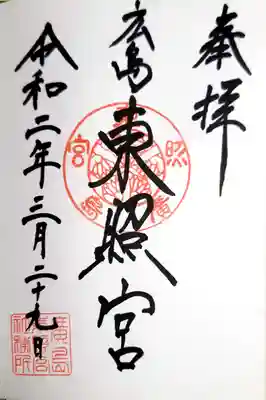 奉拝
広島東照宮
令和二年三月二十九日
廣島東照宮社務所